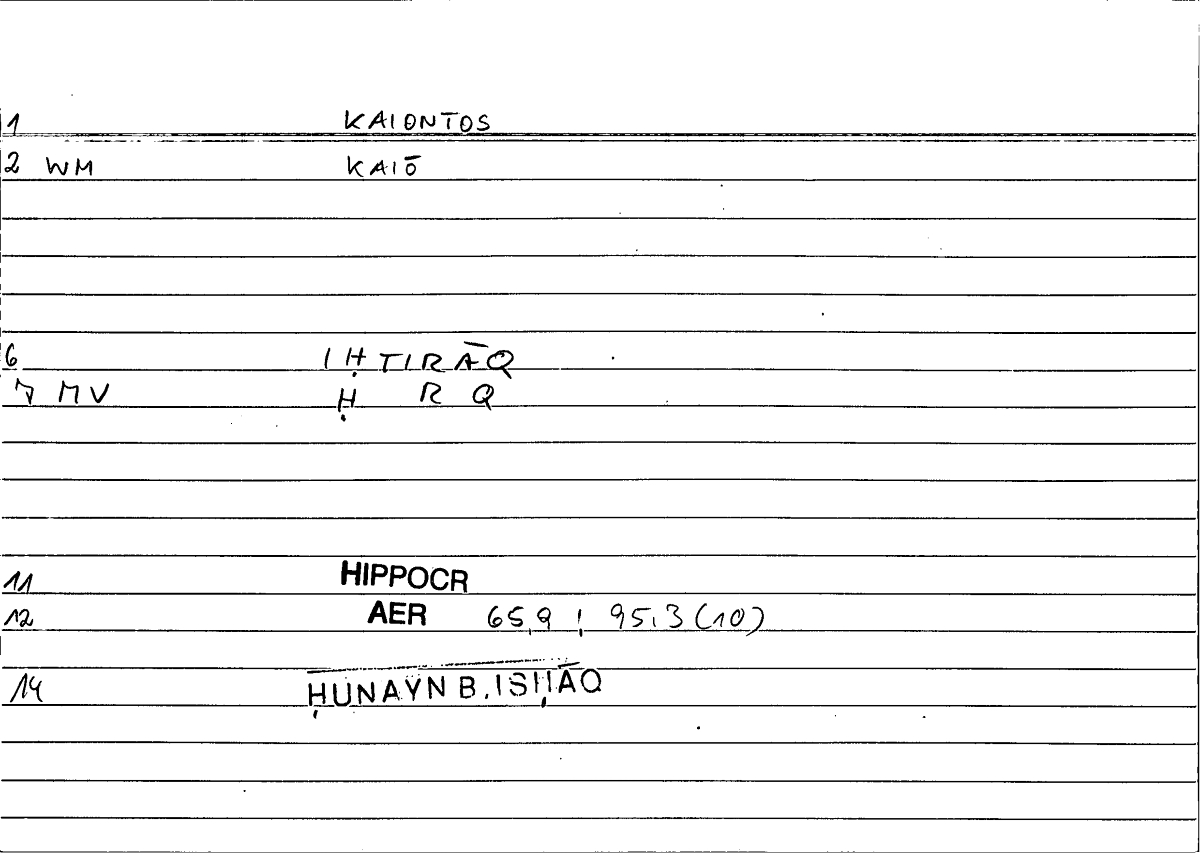 1 KAIONTOS
2 WM KAIŌ
6 IḤTIRĀQ
7 MV Ḥ R Q
11 HIPPOCR
12 AER 65,9 ; 95,3 (10)
14 ḤUNAYN B. ISḤĀQ